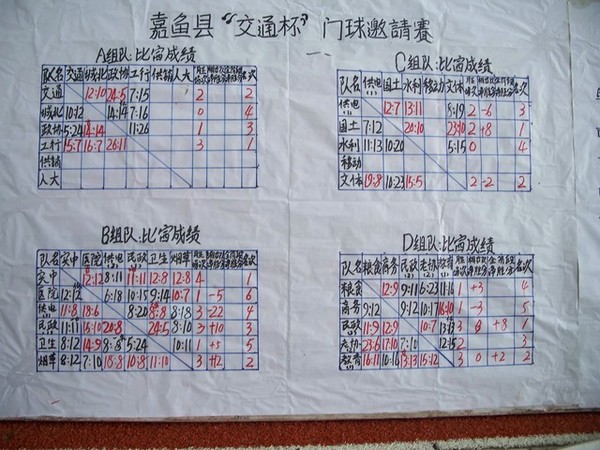 嘉鱼县“交通杯”门球邀請赛
A组队:比宙成绩
队名 交通 城北 政协 工行 供销 人大 名次
交通 12:10 24:5 7:15 2 2
城北 10:12 14:14 7:16 0 4
政协 5:24 14:14 11:26 1 3
工行 15:7 16:7 26:11 3 1
供销
人大
C组队:比宙成绩
队名 供电 国土 水利 移动 文体 名次
供电 12:7 13:11 5:19 2 -6 3
国土 7:12 20:10 23:10 2 +8 1
水利 11:13 10:20 5:15 0 4
移动
文体 19:8 10:23 15:5 2 -2 2
B组队:比宙成绩
队名 实中 医院 供电 民政 卫生 烟草 名次
实中 12:12 8:11 11:11 12:8 12:8 4 1
医院 12:12 6:18 10:15 9:14 10:7 1 -5 6
供电 11:8 18:6 8:20 8:8 8:18 3 -22 4
民政 11:11 15:10 20:8 24:5 8:10 3 +10 3
卫生 8:12 14:9 8:8 5:24 10:11 1 +5 5
烟草 8:12 7:10 18:8 10:8 11:10 3 +12 2
D组队:比宙成绩
队名 粮食 商务 民政 老协 教育 名次
粮食 12:9 9:11 6:23 11:16 1 +3 4
商务 9:12 9:12 10:17 16:10 1 -3 5
民政 11:9 12:9 10:7 13:13 3 0 +8 1
老协 23:6 17:10 7:10 12:15 2 3
教育 16:11 10:16 13:13 15:12 3 0 +2 2